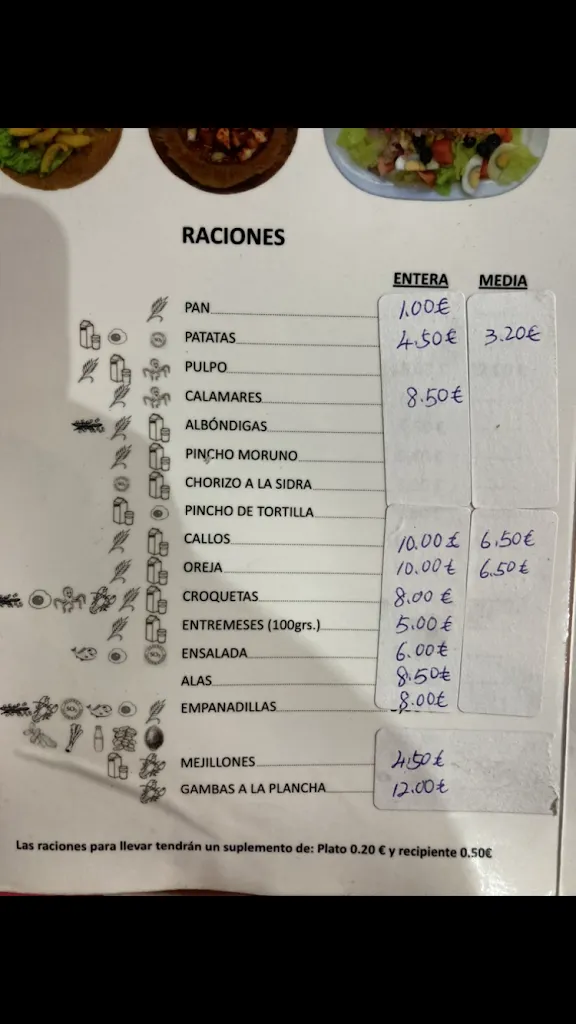 RACIONES
ENTERA MEDIA
PAN 1.00€
PATATAS 4.50€ 3.20€
PULPO
CALAMARES 8.50€
ALBÓNDIGAS
PINCHO MORUNO
CHORIZO A LA SIDRA
PINCHO DE TORTILLA
CALLOS 10.00€ 6.50€
OREJA 10.00€ 6.50€
CROQUETAS 8.00€
ENTREMESES (100grs.) 5.00€
ENSALADA 6.00€
ALAS 8.50€
EMPANADILLAS 8.00€
MEJILLONES 4.50€
GAMBAS A LA PLANCHA 12.00€
Las raciones para llevar tendrán un suplemento de: Plato 0.20 € y recipiente 0.50€